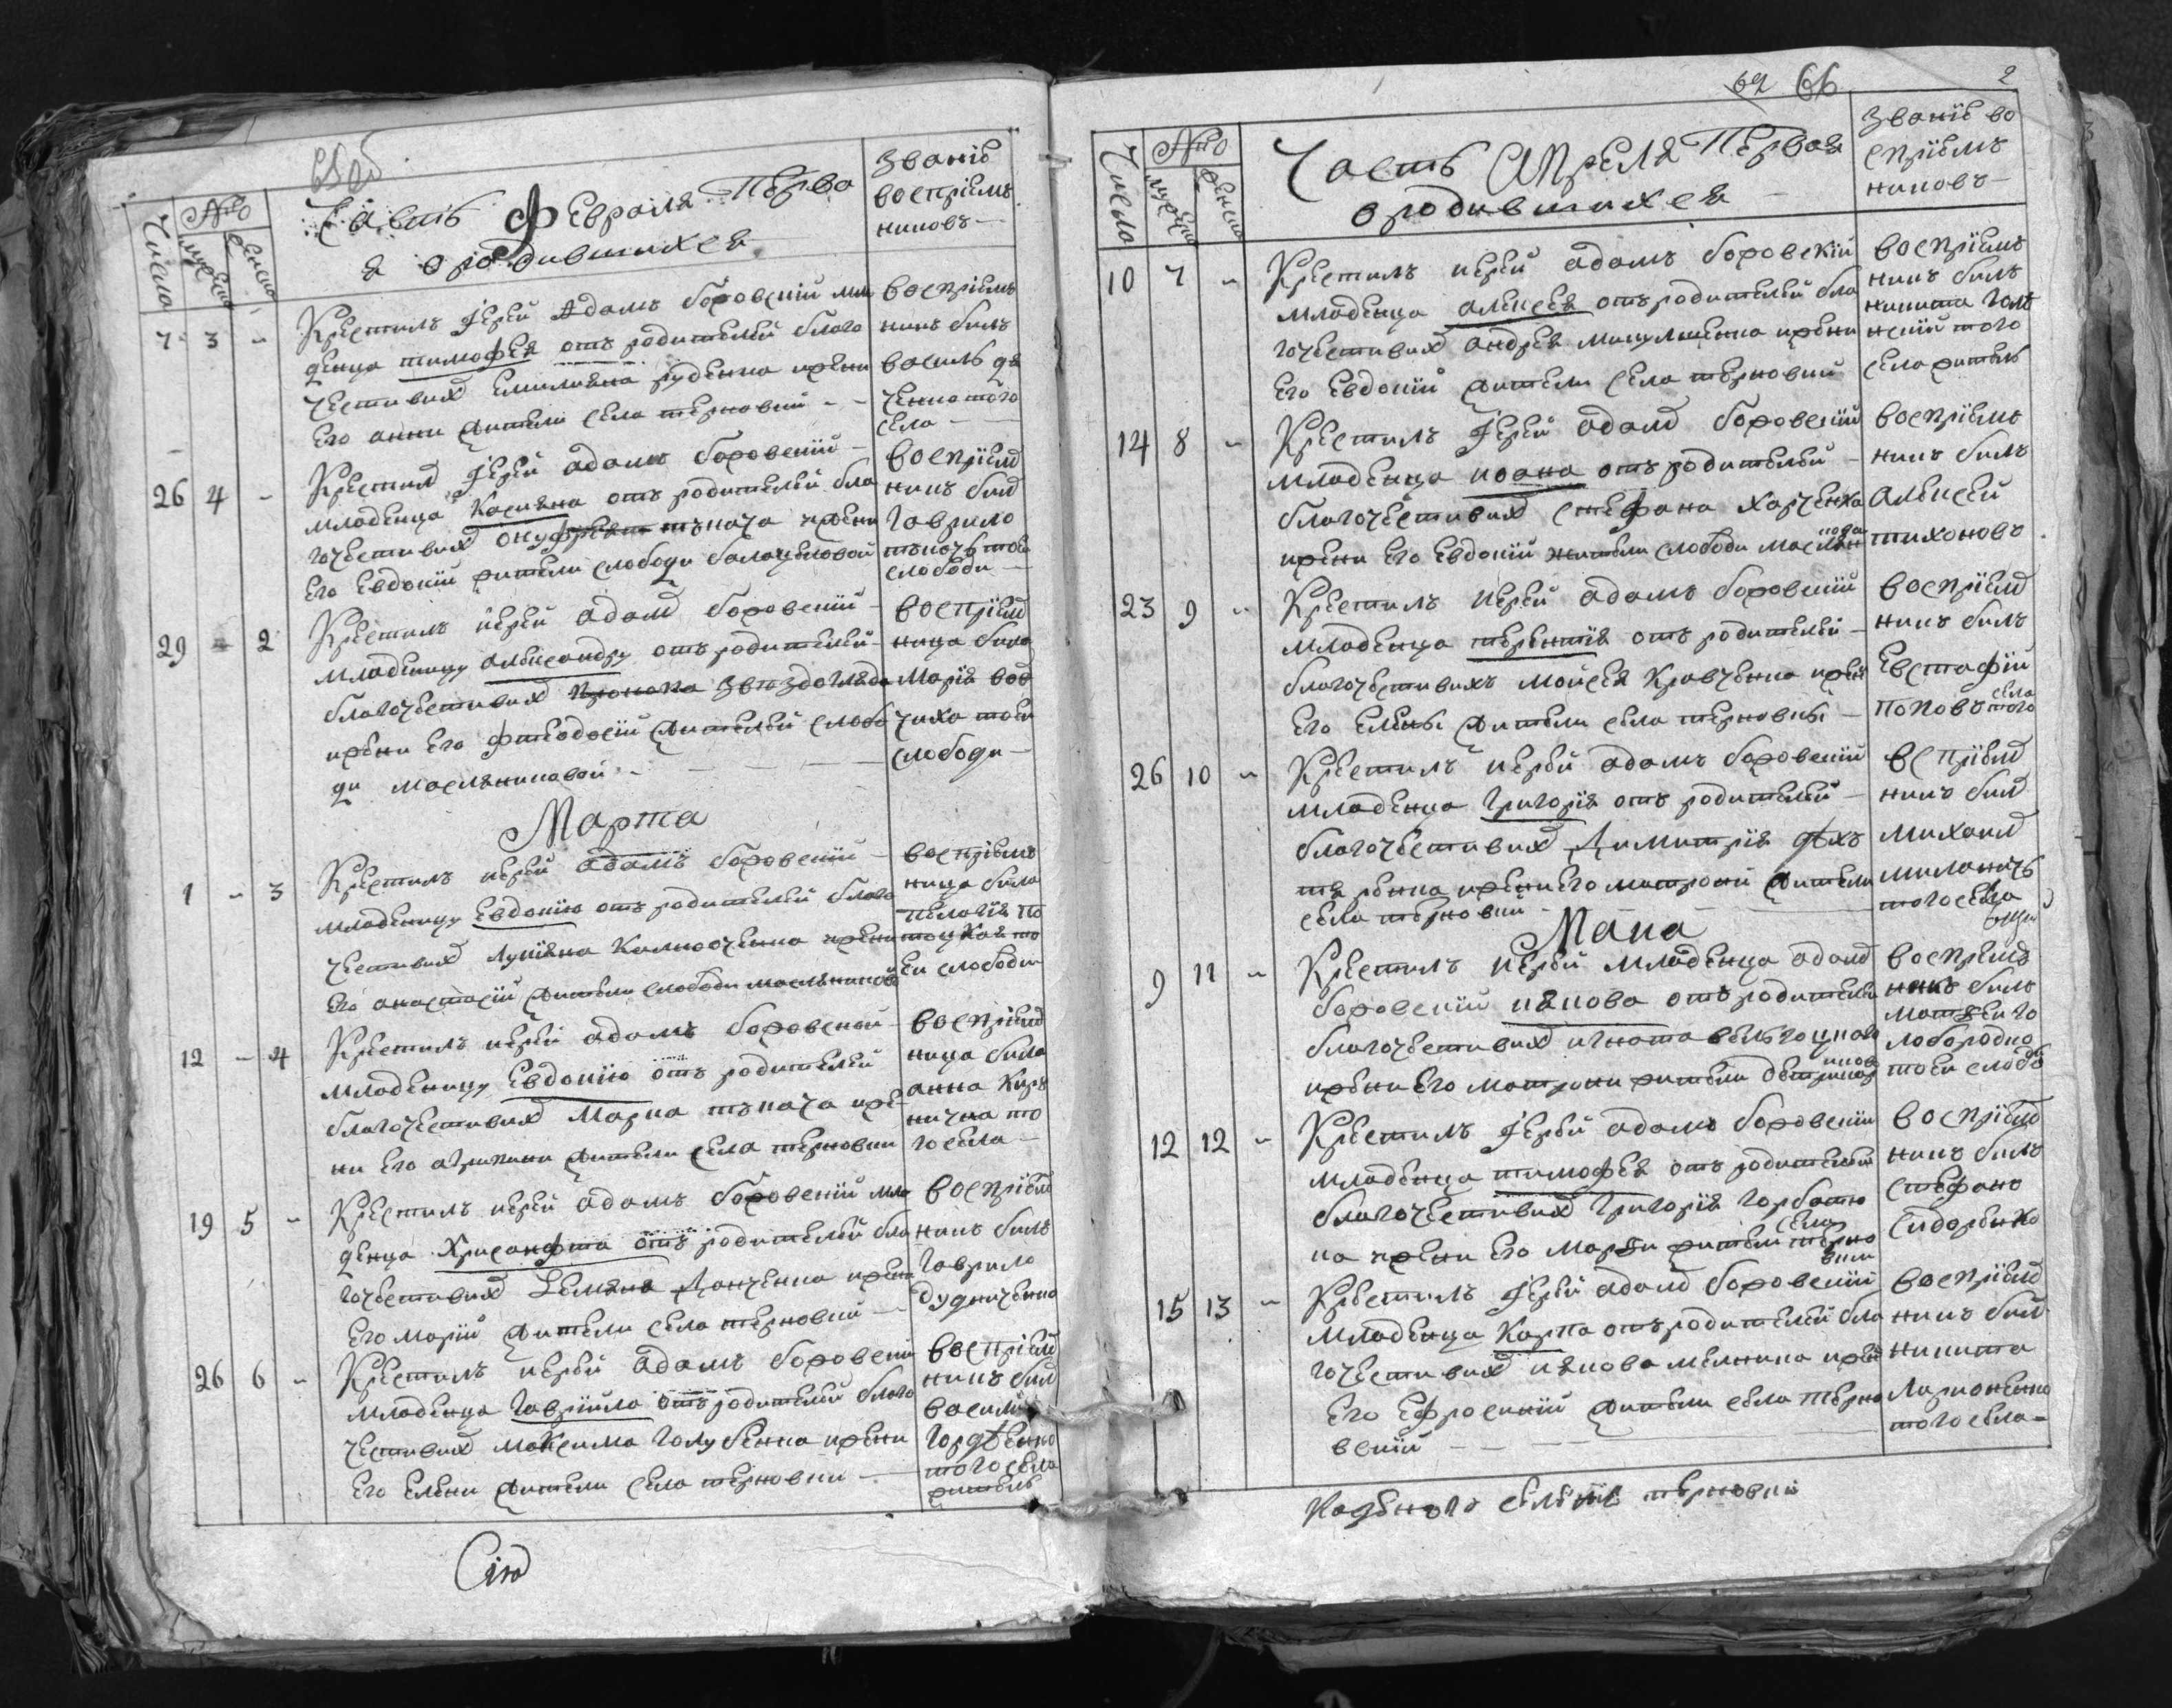 Числа
№
мужеска
женска
Часть Февраля Перва
я о родившихся
Званіе
воспріем
никовъ
7 3 -
Крестилъ Іерей Адамъ боровскій мла
денца тимофея отъ родителей благо
честивых Емилияна руденка жени
Его анни жители села терновки
воспріем
никъ билъ
василь дя
ченко того
села
26 4 -
Крестил Іерей адамъ боровскій
младенца Касияна отъ родителей бла
гочестивих ткача жени
Его Евдокіи жители слободи
воспріем
никъ бил
гаврило
ткачъ тоей
слободи
29 - 2
Крестилъ иерей адам боровскій
младеницу александру отъ родителей
благочестивих Прокопа
жени Его фтеодосіи жителей слобо
ди масляниковой
воспріем
ница била
Марія
чиха тоей
слободи
Марта
1 - 3
Крестилъ иерей адамъ боровскій
младеницу Евдокию отъ родителей благо
честивих Лукияна жени
Его анастасіи жители слободи масляниковой
воспріем
ница била
пелагія по
тоцкая то
еи слободи
12 - 4
Крестилъ иерей адамъ боровской
младеницу Евдокию отъ родителей
благочестивих Марка ткача жен
ни Его агрипини жители села терновки
воспріем
ница била
анна Кир
нична то
го села
19 5 -
Крестилъ иерей адамъ боровскій мла
денца Хрисанфта отъ родителей бла
гочестивих Демяна Донченка жени
Его маріи жители села терновки
воспріем
никъ билъ
гаврило
дудниченко
26 6 -
Крестилъ иерей адамъ боровскій
младенца Гавриила отъ родителей благо
честивих максима голубенка жени
Его Елени жители села терновки
воспріем
никъ бил
василій
гордѣенко
того села
житель
Сію
62 66 2
Числа
№
мужеска
женска
Часть Апреля Первая
о родившихся
Званіе во
спріем
никовъ
10 7 -
Крестилъ иерей адамъ боровскій
младенца алексея отъ родителей бла
гочестивих андрея жени
Его Евдокіи жители села терновки
воспріем
никъ билъ
никита
того
села житель
14 8 -
Крестилъ Іерей адам боровскій
младенца иоана отъ родителей
благочестивих стефана харченка
жени Его Евдокіи жители слободи маслян
кова
воспріем
никъ билъ
Алексей
тихоновъ
23 9 -
Крестилъ иерей адамъ боровскій
младенца терентія отъ родителей
благочестивихъ мойсея Кравченка жени
Его Елены жители села терновки
воспріем
никъ билъ
Евстафій
поповъ того
села
26 10 -
Крестилъ иерей адамъ боровскій
младенца григорія отъ родителей
благочестивих Димитрія
жени Его матрони жители
села терновки
вспріем
никъ бил
михаил
миланичъ
того села
Маиа
9 11 -
Крестилъ иерей младенца адам
боровскій иякова отъ родителей
благочестивих игната
жени Его матрони жители
воспріем
никъ билъ
матвей го
лобородко
тоеи слобо
12 12 -
Крестилъ Іерей адамъ боровскій
младенца тимофея отъ родителей
благочестивих григорія горбатю
ка жени Его марфи жители терно
села
вки
воспріем
никъ билъ
стефанъ
Сидоренко
15 13 -
Крестилъ Іерей адам боровскій
младенца Карпа отъ родителей бла
гочестивих иякова мелника жени
Его Ефросиніи жители села терно
вскій
воспріем
никъ бил
никита
Ларионенко
того села
терновки